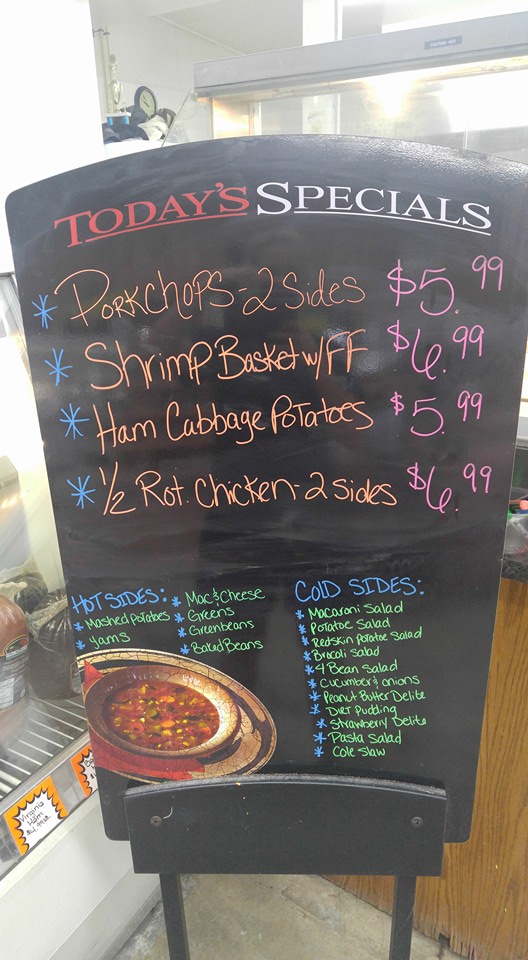 TODAY'S SPECIALS
* PORKCHOPS - 2 Sides $5.99
* Shrimp Basket w/FF $6.99
* Ham Cabbage Potatoes $5.99
* 1/2 Rot. Chicken - 2 sides $6.99
HOT SIDES:
* Mashed Potatoes
* Yams
* Mac & Cheese
* Greens
* Greenbeans
* Baked Beans
COLD SIDES:
* Macaroni Salad
* Potatoe Salad
* Redskin Potatoe Salad
* Brocoli Salad
* 4 Bean Salad
* Cucumber & onions
* Peanut Butter Delite
* DIRT Pudding
* Strawberry Delite
* Pasta Salad
* Cole Slaw
Virginia
Ham
CAUTION HOT